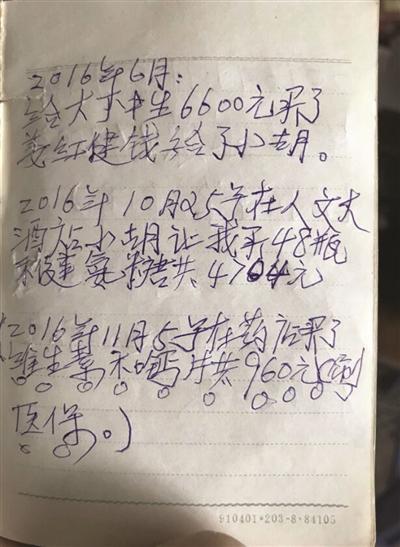 2016年6月:
给大木中生6600元买了
美红健钱给了小胡。
2016年10月25号在人文大
酒店小胡让我买48瓶
健氨糖共4704元
(2016年11月5号在药店买了
维生素和钙片共960元(刷
医保。)
910401•203-8-84105